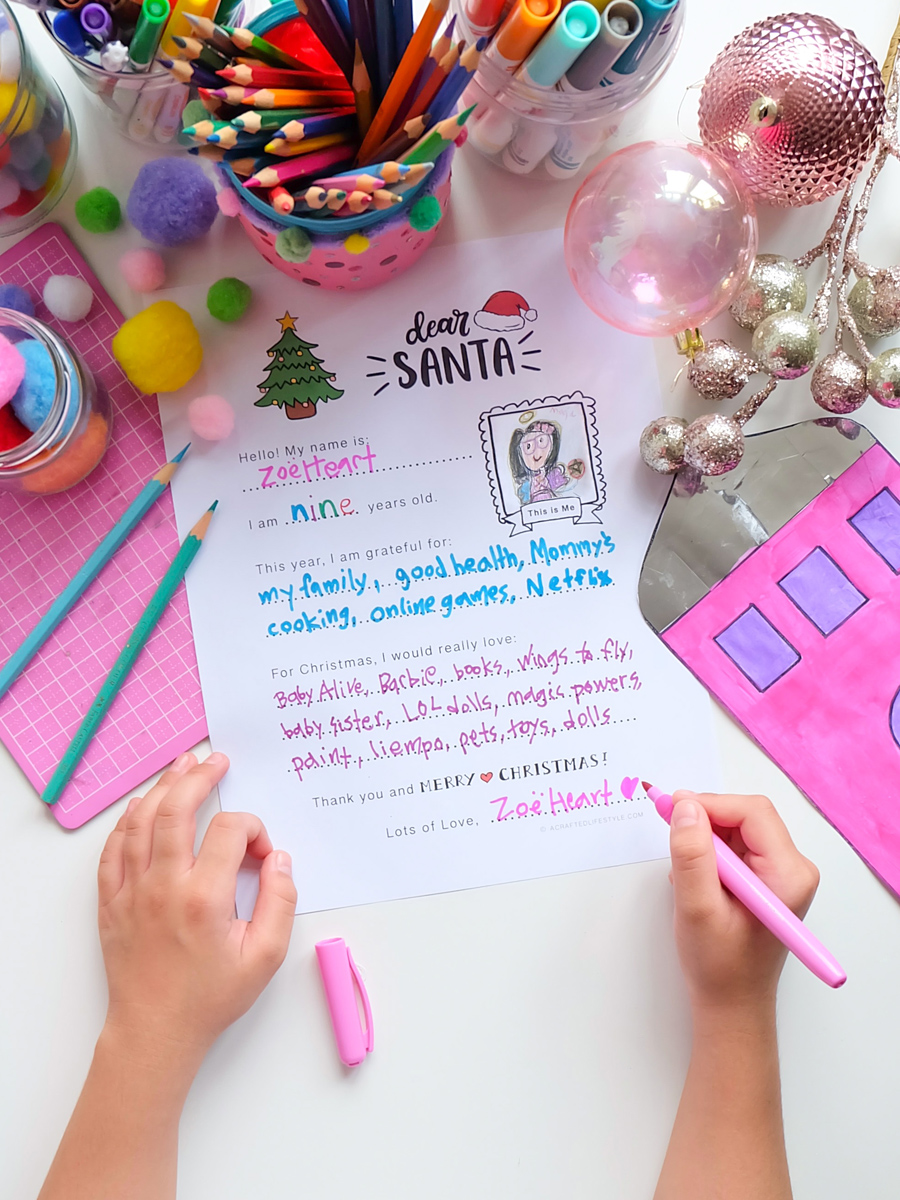 dear
SANTA
Hello! My name is:
ZoëHeart
I am nine years old.
This is Me
This year, I am grateful for:
my family, good health, Mommy's
cooking, online games, Netflix
For Christmas, I would really love:
Baby Alive, Barbie, books, wings to fly,
baby sister, LOL dolls, magic powers,
paint, liempo, pets, toys, dolls
Thank you and MERRY ♥ CHRISTMAS!
Lots of Love, ZoëHeart ♥
© ACRAFTEDLIFESTYLE.COM